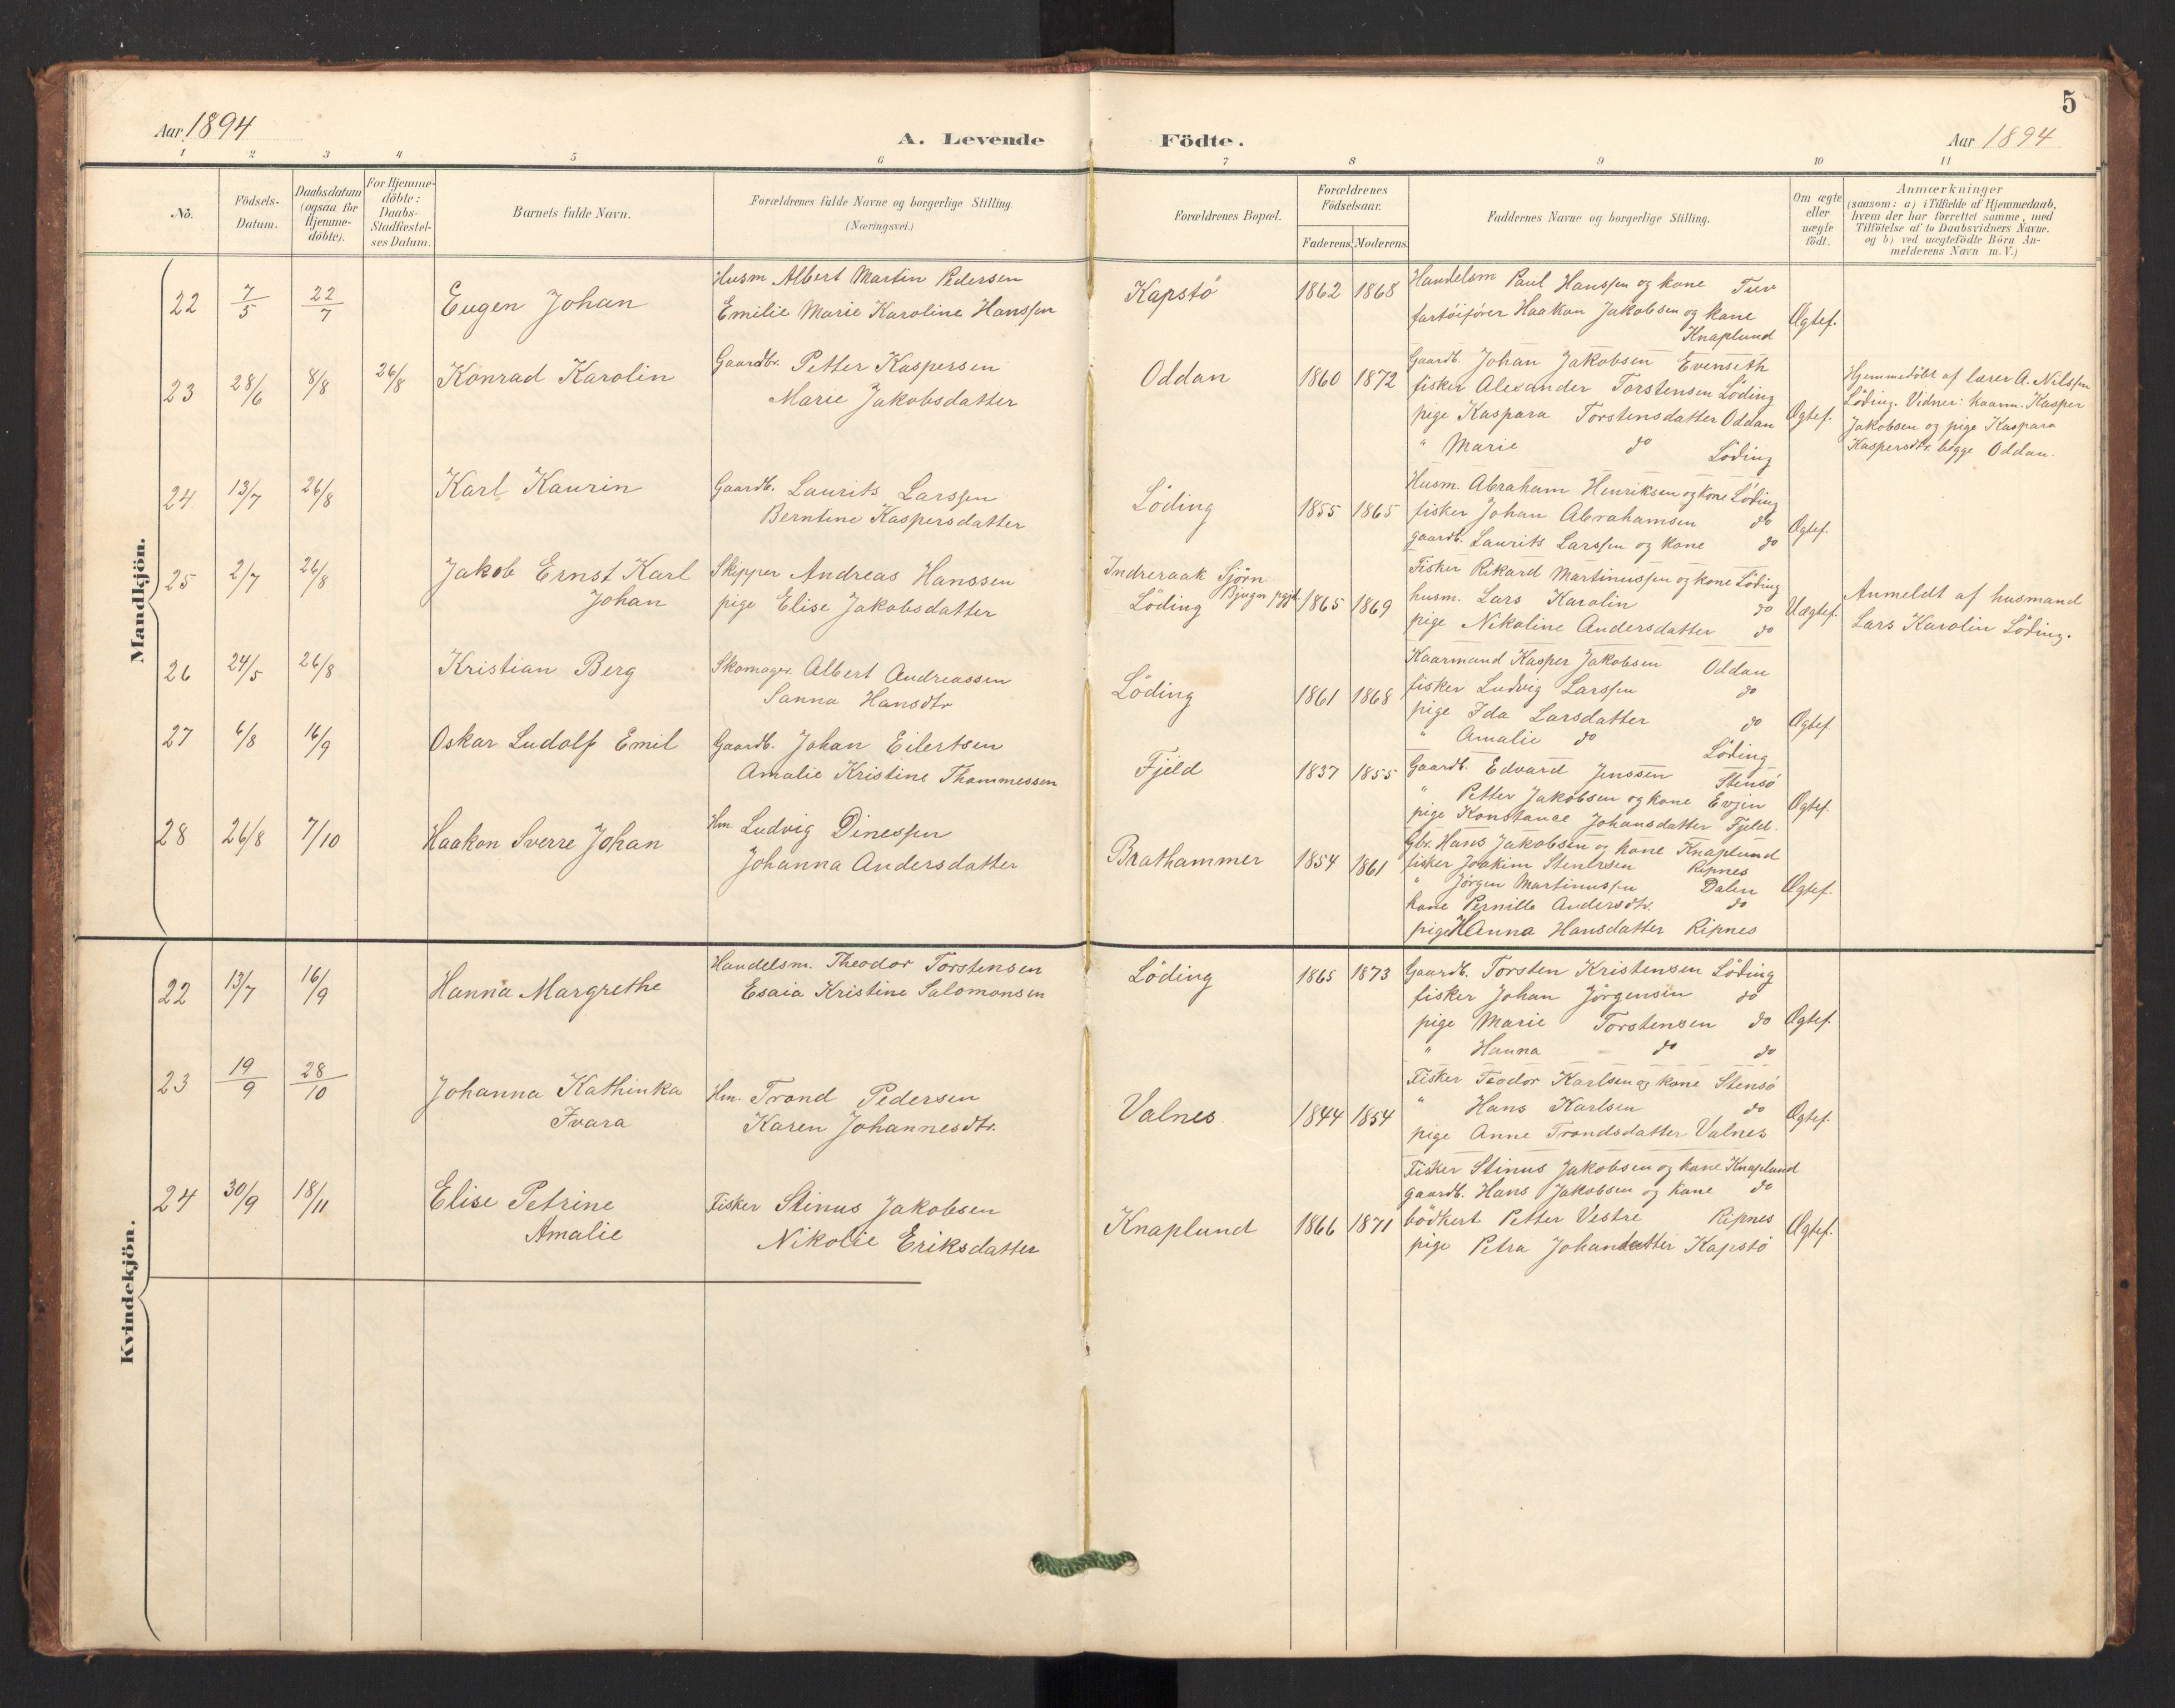 5
Aar 1894
A. Levende Födte.
Aar 1894
1 2 3 4 5 6 7 8 9 10 11
No.
Födsels-
Datum.
Daabsdatum
(ogsaa for
Hjemme-
döbte).
For Hjemme-
döbte:
Daabs-
Stadfæstel-
ses Datum.
Barnets fulde Navn.
Forældrenes fulde Navne og borgerlige Stilling.
(Næringsvei.)
Forældrenes Bopæl.
Forældrenes
Födselsaar.
Faderens. Moderens.
Faddernes Navne og borgerlige Stilling.
Om ægte
eller
uægte
födt.
Anmærkninger
(saasom: a) i Tilfælde af Hjemmedaab,
hvem der har forrettet samme, med
Tilföielse af to Daabsvidners Navne.
og b) ved uægtefödte Börn An-
melderens Navn m. V.)
Mandkjön.
22 7/5 22/7 Eugen Johan
Husm. Albert Martin Pedersen
Emilie Marie Karoline Hanssen
Kapstö 1862 1868
Handelsm Paul Hanssen og kone Tuv
fartöiförer Haakon Jakobsen og kone
Knaplund
Ægtef.
23 28/6 8/8 26/8 Konrad Karolin
Gaardbr. Petter Kaspersen
Marie Jakobsdatter
Oddan 1860 1872
Gaardb. Johan Jakobsen Evenseth
fisker Alexander Torstensen Löding
pige Kaspara Torstensdatter Oddan
" Marie do Löding
Ægtef.
Hjemmedöbt af lærer A. Nilssen
Löding. Vidner: kaarm. Kasper
Jakobsen og pige Kaspara
Kaspersdtr. begge Oddan.
24 13/7 26/8 Karl Kaurin
Gaardb. Laurits Larssen
Berntine Kaspersdatter
Löding 1855 1865
Husm. Abraham Henriksen og kone Löding
fisker Johan Abrahamsen do
gaardb. Laurits Larssen og kone do
Ægtef.
25 2/7 26/8 Jakob Ernst Karl
Johan
Skipper Andreas Hanssen
pige Elise Jakobsdatter
Indreraak Sjörn
Bjugn pgjd.
Löding 1865 1869
Fisker Rikard Martinussen og kone Löding
husm. Lars Karolin do
pige Nikoline Andersdatter do
Uægtef.
Anmeldt af husmand
Lars Karolin Löding.
26 24/5 26/8 Kristian Berg
Skomager. Albert Andreassen
Sanna Hansdtr
Löding 1861 1868
Kaarmand Kasper Jakobsen Oddan
fisker Ludvig Larssen do
pige Ida Larsdatter do
" Amalie do Löding
Ægtef.
27 6/8 16/9 Oskar Ludolf Emil
Gaardb. Johan Eilertsen
Amalie Kristine Thommessen
Fjeld 1837 1855
Gaardb. Edvard Jenssen Stensö
" Petter Jakobsen og kone Evjen
pige Konstance Johansdatter Fjeld.
Ægtef.
28 26/8 7/10 Haakon Sverre Johan
Hm. Ludvig Dinessen
Johanna Andersdatter
Brathammer 1854 1861
Gbr. Hans Jakobsen og kone Knaplund
fisker Joakim Stenersen Ripnes
" Jörgen Martinussen Dalen
kone Pernille Andersdtr. do
pige Hanna Hansdatter Ripnes
Ægtef.
Kvindekjön.
22 13/7 16/9 Hanna Margrethe
Handelsm. Theodor Torstensen
Esaia Kristine Salomonsen
Löding 1865 1873
Gaardb. Torsten Kristensen Löding
fisker Johan Jörgensen do
pige Marie Torstensen do
" Hanna do do
Ægtef.
23 19/9 28/10 Johanna Kathinka
Ivara
Hm. Trond Pedersen
Karen Johannesdtr.
Valnes 1844 1854
Fisker Teodor Karlsen og kone Stensö
" Hans Karlsen do
pige Anne Trondsdatter Valnes
Ægtef.
24 30/9 18/11 Elise Petrine
Amalie
Fisker Stinus Jakobsen
Nikolie Eriksdatter
Knaplund 1866 1871
Fisker Stinus Jakobsen og kone Knaplund
gaardb. Hans Jakobsen og kone do
bödkert Petter Vestre Ripnes
pige Petra Johandatter Kapstö
Ægtef.